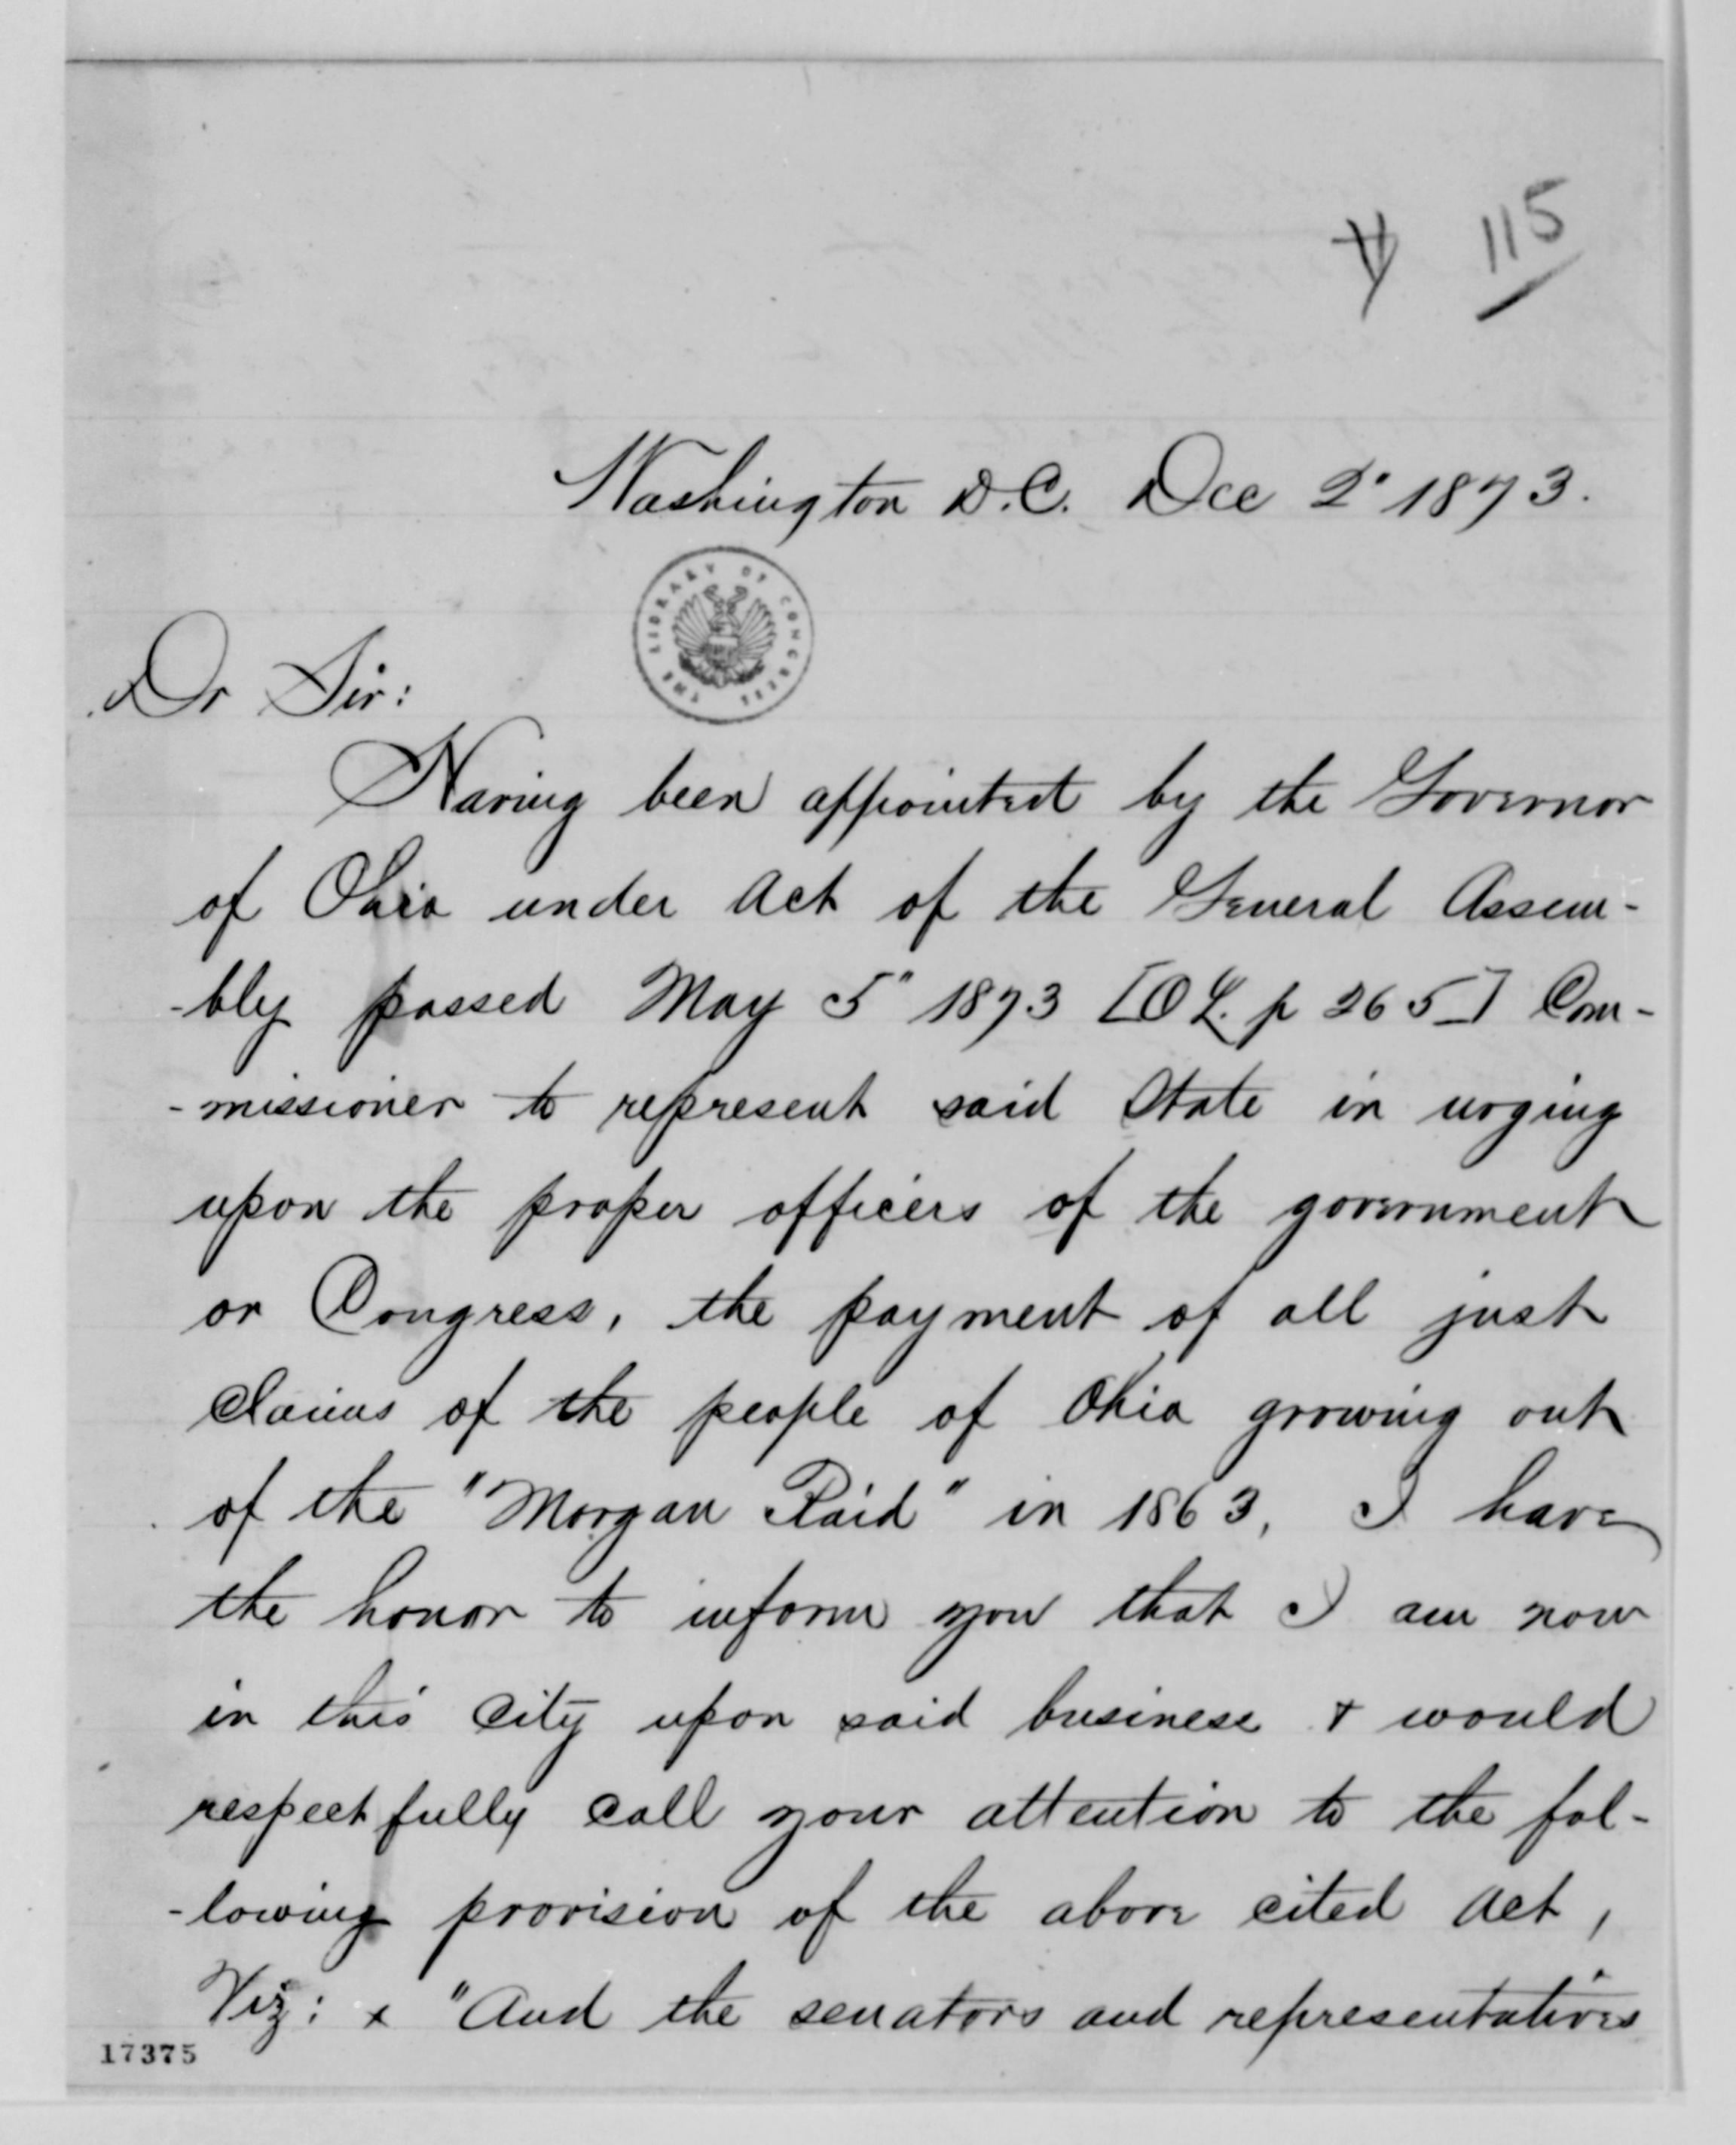 115
Washington D.C. Dec 2" 1873.
THE LIBRARY OF CONGRESS
Dr Sir:
Having been appointed by the Governor
of Ohio under Act of the General Assem-
-bly passed May 5" 1873 [OL. p 265] Com-
-missioner to represent said State in urging
upon the proper officers of the government
or Congress, the payment of all just
claims of the people of Ohio growing out
of the "Morgan Raid" in 1863, I have
the honor to inform you that I am now
in this City upon said business & would
respectfully call your attention to the fol-
-lowing provision of the above cited Act,
Viz: x "And the senators and representatives
17375